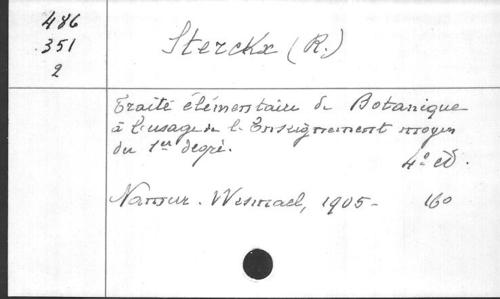 486
351
2
Sterckx (R.)
Traité élémentaire de Botanique
à l'usage de l'Enseignement moyen
du 1er degré.
4e éd.
Namur. Wesmael, 1905- 160